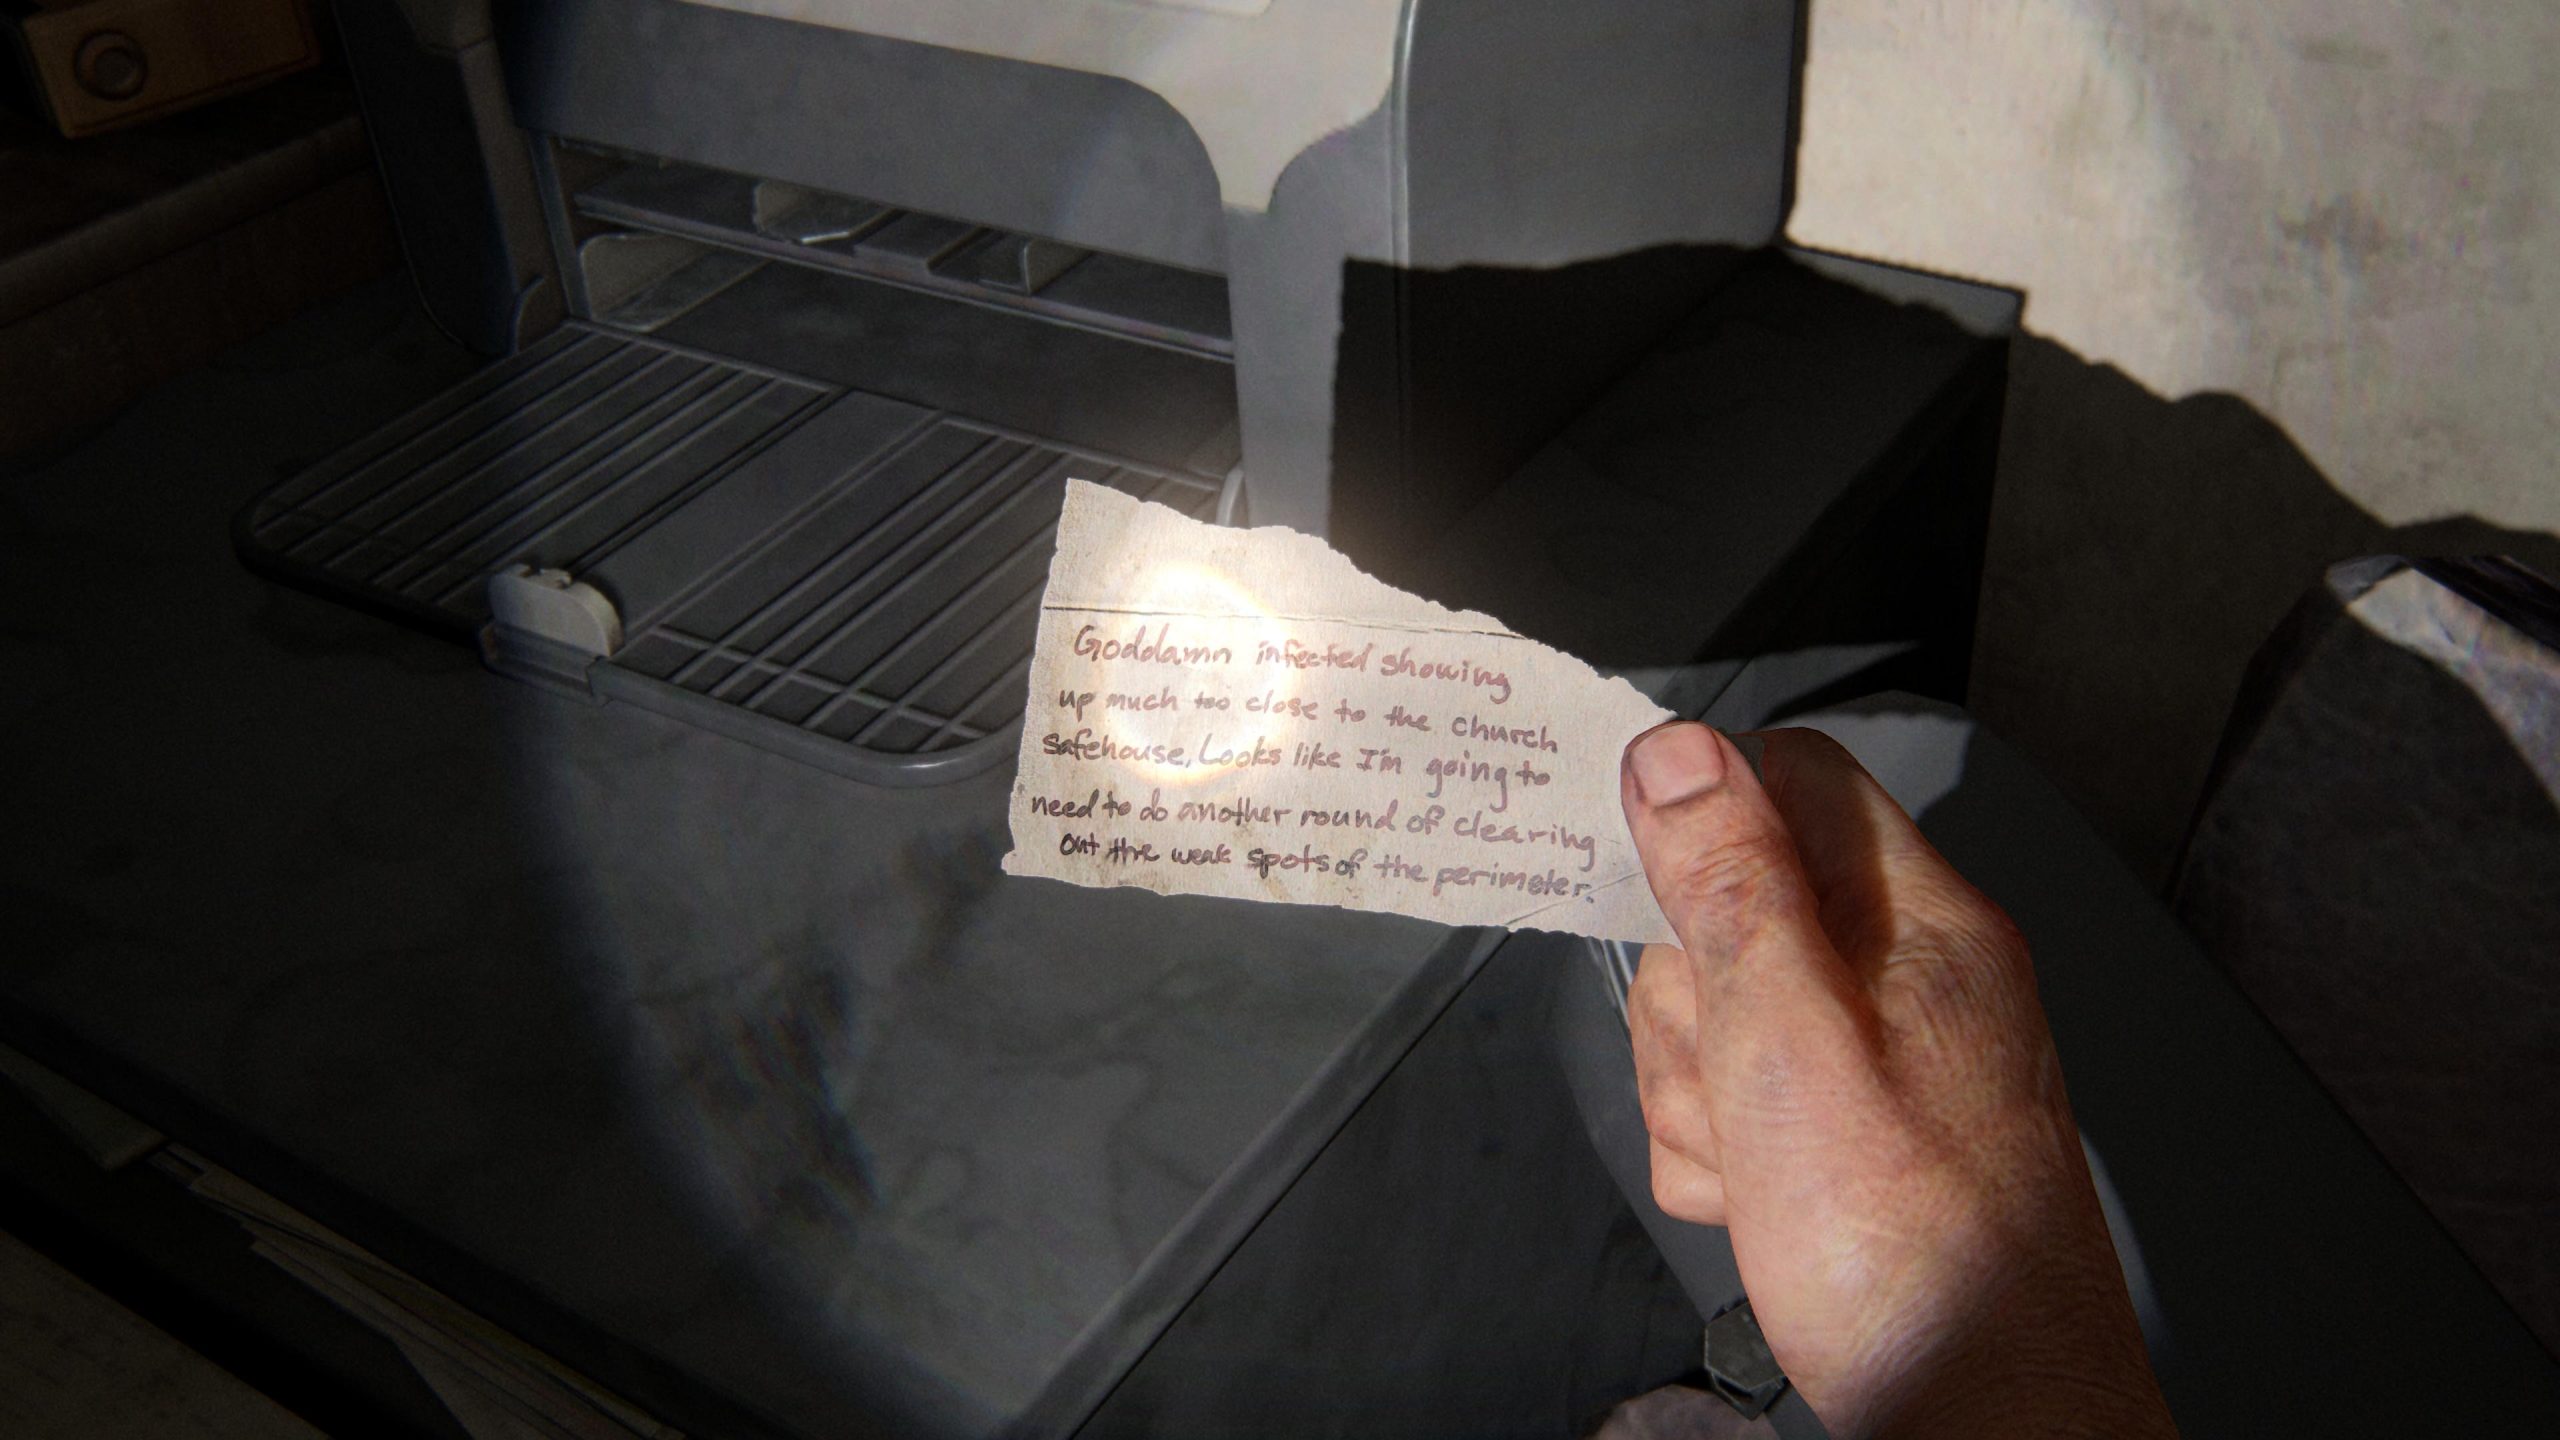 Goddamn infected showing
up much too close to the church
safehouse. Looks like I'm going to
need to do another round of clearing
out the weak spots of the perimeter.